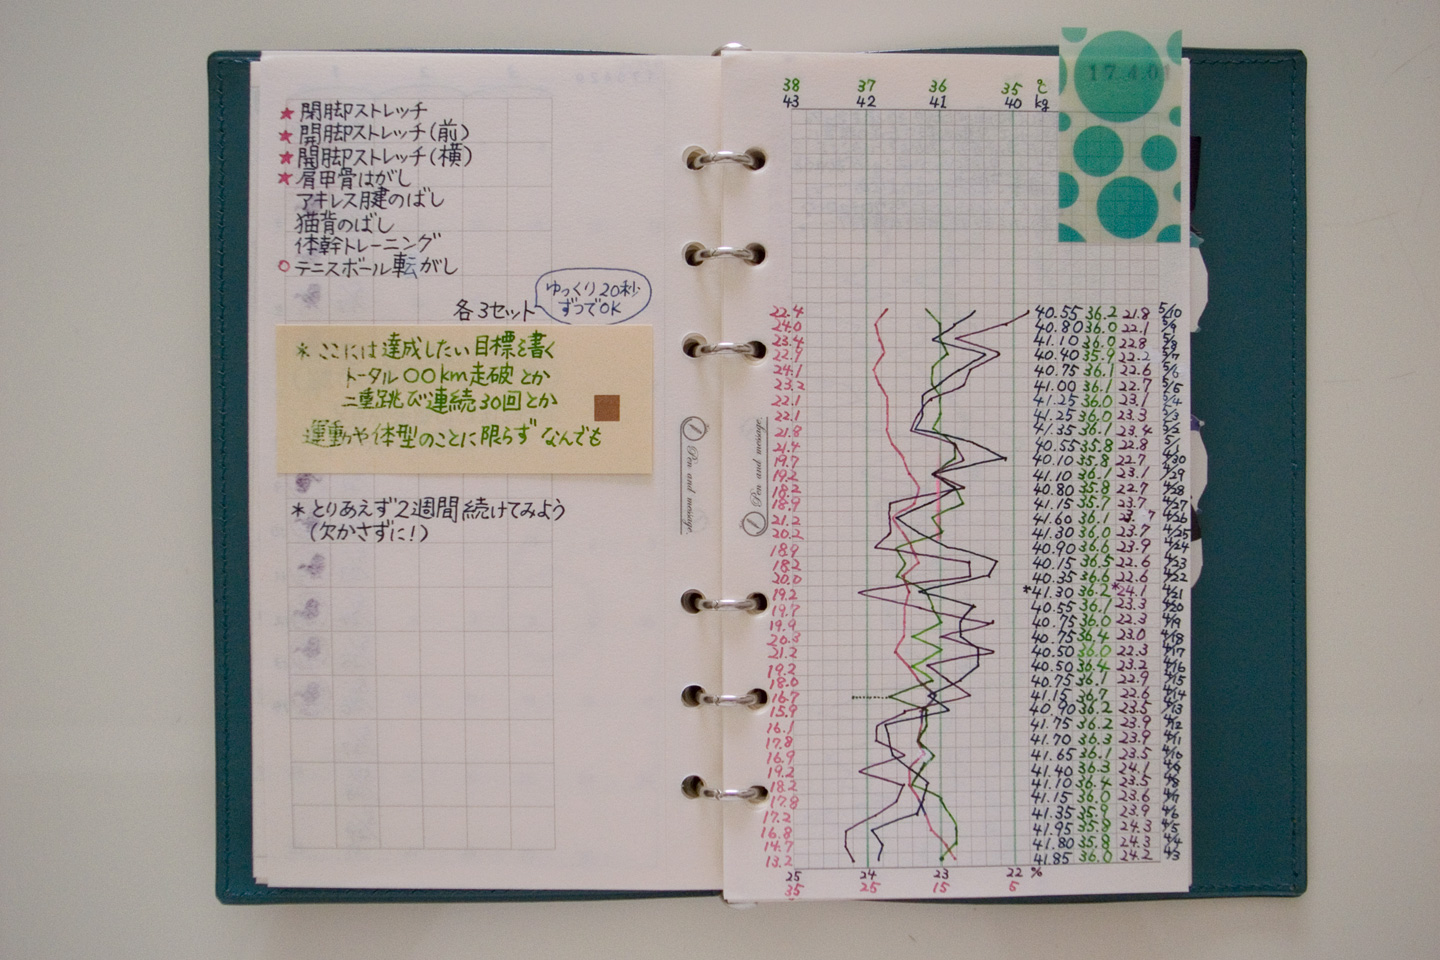 ★ 開脚ストレッチ
★ 開脚ストレッチ(前)
★ 開脚ストレッチ(横)
★ 肩甲骨はがし
アキレス腱のばし
猫背のばし
体幹トレーニング
○ テニスボール転がし
各3セット
ゆっくり20秒
ずつでOK
* ここには達成したい目標を書く
トータル〇〇km走破とか
二重跳び連続30回とか
運動や体型のことに限らずなんでも
* とりあえず2週間続けてみよう
(欠かさずに!)
Pen and message.
Pen and message.
17.4.01
38 37 36 35 ℃
43 42 41 40 kg
22.4 40.55 36.2 21.8 5/10
24.0 40.80 36.0 22.1 5/9
23.4 41.10 36.0 22.8 5/8
22.9 40.40 35.9 22.2 5/7
24.1 40.75 36.1 22.6 5/6
23.2 41.00 36.1 22.7 5/5
22.1 41.25 36.0 23.1 5/4
22.1 41.25 36.0 23.3 5/3
21.8 41.35 36.1 23.4 5/2
21.4 40.55 35.8 22.8 5/1
19.7 40.10 35.8 22.7 4/30
19.2 41.10 36.1 23.1 4/29
18.2 40.80 35.8 22.7 4/28
18.9 41.15 35.7 23.7 4/27
21.2 41.60 36.1 23.7 4/26
20.2 41.30 36.0 23.7 4/25
18.9 40.90 36.6 23.9 4/24
18.2 40.15 36.5 22.6 4/23
20.0 40.35 36.6 22.6 4/22
19.2 *41.30 36.2 *24.1 4/21
19.7 40.55 36.1 23.3 4/20
19.9 40.75 36.0 22.3 4/19
20.3 40.75 36.4 23.0 4/18
21.2 40.50 36.0 22.3 4/17
19.2 40.50 36.4 23.2 4/16
18.0 40.75 36.1 22.9 4/15
16.7 41.15 36.7 22.6 4/14
15.9 40.90 36.2 23.5 4/13
16.1 41.75 36.2 23.9 4/12
17.8 41.70 36.3 23.9 4/11
16.9 41.65 36.1 23.5 4/10
19.2 41.40 36.3 24.1 4/9
18.2 41.10 36.4 23.5 4/8
17.8 41.15 36.0 23.6 4/7
17.2 41.35 35.9 23.9 4/6
16.8 41.95 35.8 24.3 4/5
14.7 41.80 35.8 24.3 4/4
13.2 41.85 36.0 24.2 4/3
25 24 23 22 %
35 25 15 5